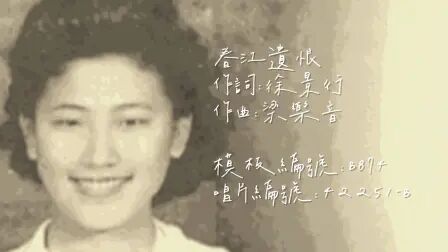 春江遺恨
作詞:徐景行
作曲:梁樂音
模板編號:B874
唱片編號:42251-B